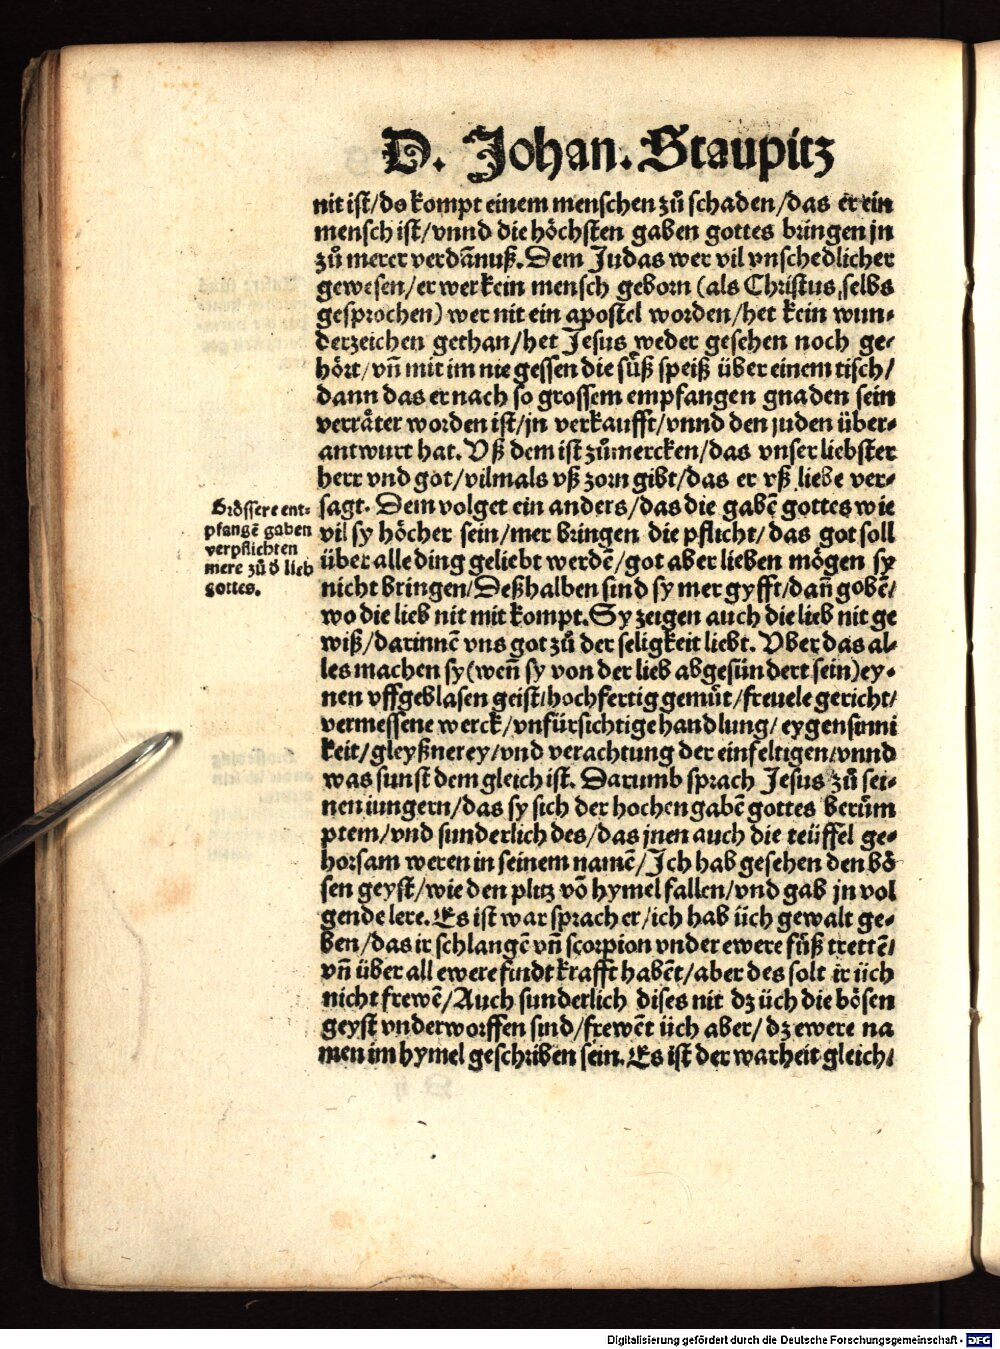 D. Johan. Staupitz
nit ist/do kompt einem menschen zů schaden/das er ein
mensch ist/vnnd die höchsten gaben gottes bringen jn
zů merer verdãnuß. Dem Judas wer vil vnschedlicher
gewesen/er wer kein mensch geborn (als Christus selbs
gesprochen) wer nit ein apostel worden/het kein wun⸗
derzeichen gethan/het Jesus weder gesehen noch ge⸗
hört/vñ mit im nie gessen die süß speiß über einem tisch/
dann das er nach so grossem empfangen gnaden sein
verräter worden ist/jn verkaufft/vnnd den juden über⸗
antwurt hat. Vß dem ist zůmercken/das vnser liebster
herr vnd got/vilmals vß zorn gibt/das er vß liebe ver⸗
sagt. Dem volget ein anders/das die gabẽ gottes wie
vil sy höcher sein/mer bringen die pflicht/das got soll
über alle ding geliebt werdẽ/got aber lieben mögen sy
nicht bringen/Deßhalben sind sy mer gyfft/dañ gobẽ/
wo die lieb nit mit kompt. Sy zeigen auch die lieb nit ge
wiß/darinnẽ vns got zů der seligkeit liebt. Vber das al⸗
les machen sy(weñ sy von der lieb abgesündert sein)ey⸗
nen vffgeblasen geist/hochfertig gemüt/freuele gericht/
vermessene werck/vnfürsichtige handlung/eygensinni
keit/gleyßnerey/vnd verachtung der einfeltigen/vnnd
was sunst dem gleich ist. Darumb sprach Jesus zů sei⸗
nen iungern/das sy sich der hochen gabẽ gottes berům
ptem/vnd sunderlich des/das jnen auch die teüffel ge⸗
horsam weren in seinem namẽ/Jch hab gesehen den bö
sen geyst/wie den plitz võ hymel fallen/vnd gab jn vol
gende lere. Es ist war sprach er/ich hab üch gewalt ge⸗
ben/das ir schlangẽ vñ scorpion vnder ewere füß trettẽ/
vñ über all ewere findt krafft habẽt/aber des solt ir üch
nicht frewẽ/Auch sunderlich dises nit dz üch die bösen
geyst vnderworffen sind/frewẽt üch aber/dz ewere na
men im hymel geschriben sein. Es ist der warheit gleich/
Grössere ent⸗
pfangẽ gaben
verpflichten
mere zů d̃ lieb
gottes.
Digitalisierung gefördert durch die Deutsche Forschungsgemeinschaft - DFG